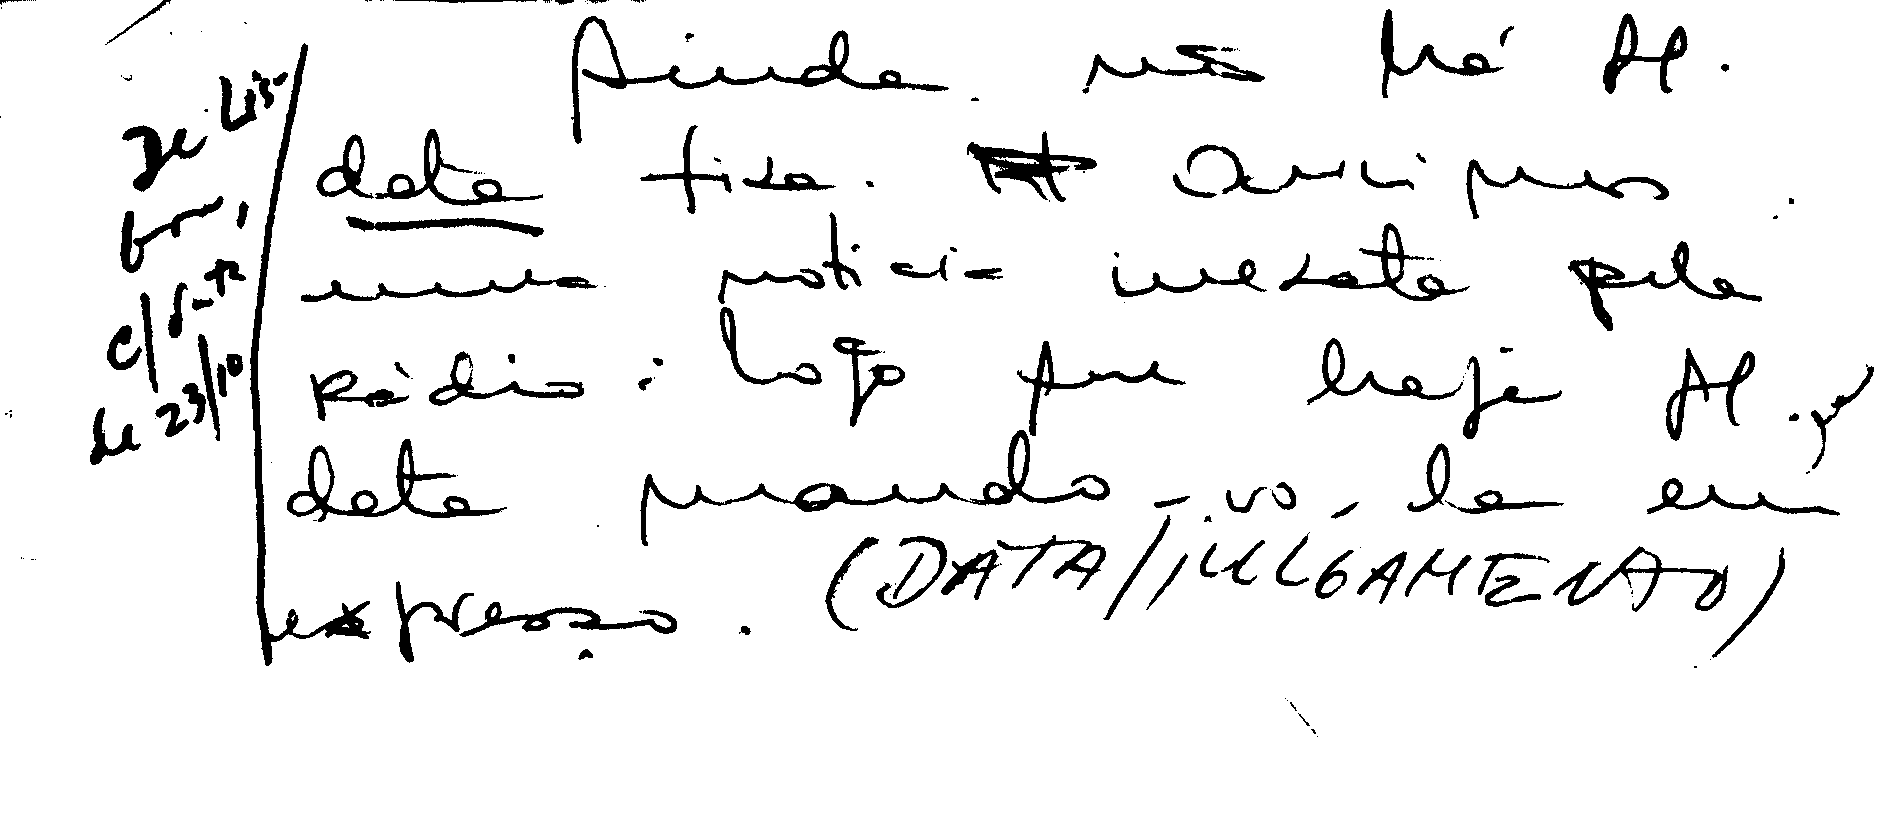 De Lis-
boa,
c/ data
de 23/10
Ainda não há M.
data fixa. Ouvimos
uma notícia inexata pela
Rádio: logo que haja M.
data mando-vo-la em
expresso. (DATA/JULGAMENTO)